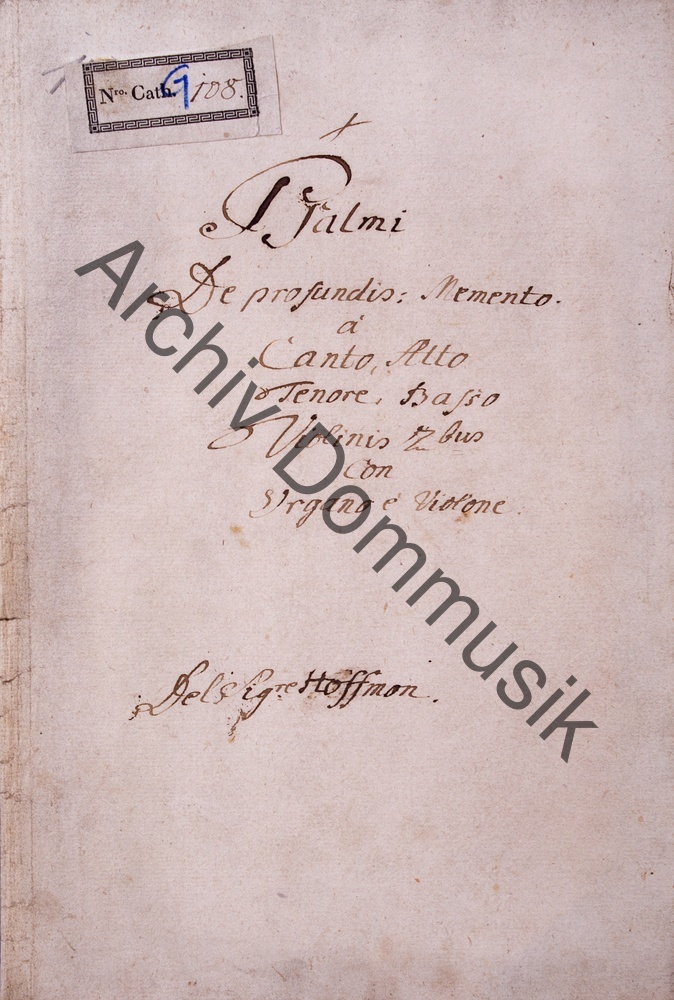 Nro. Cath. G 108.
Psalmi
De profundis: Memento.
à
Canto, Alto
Tenore, Basso
Violinis 2bus
Con
Organo e Violone.
Del Sigre Hoffmon.
Archiv Dommusik